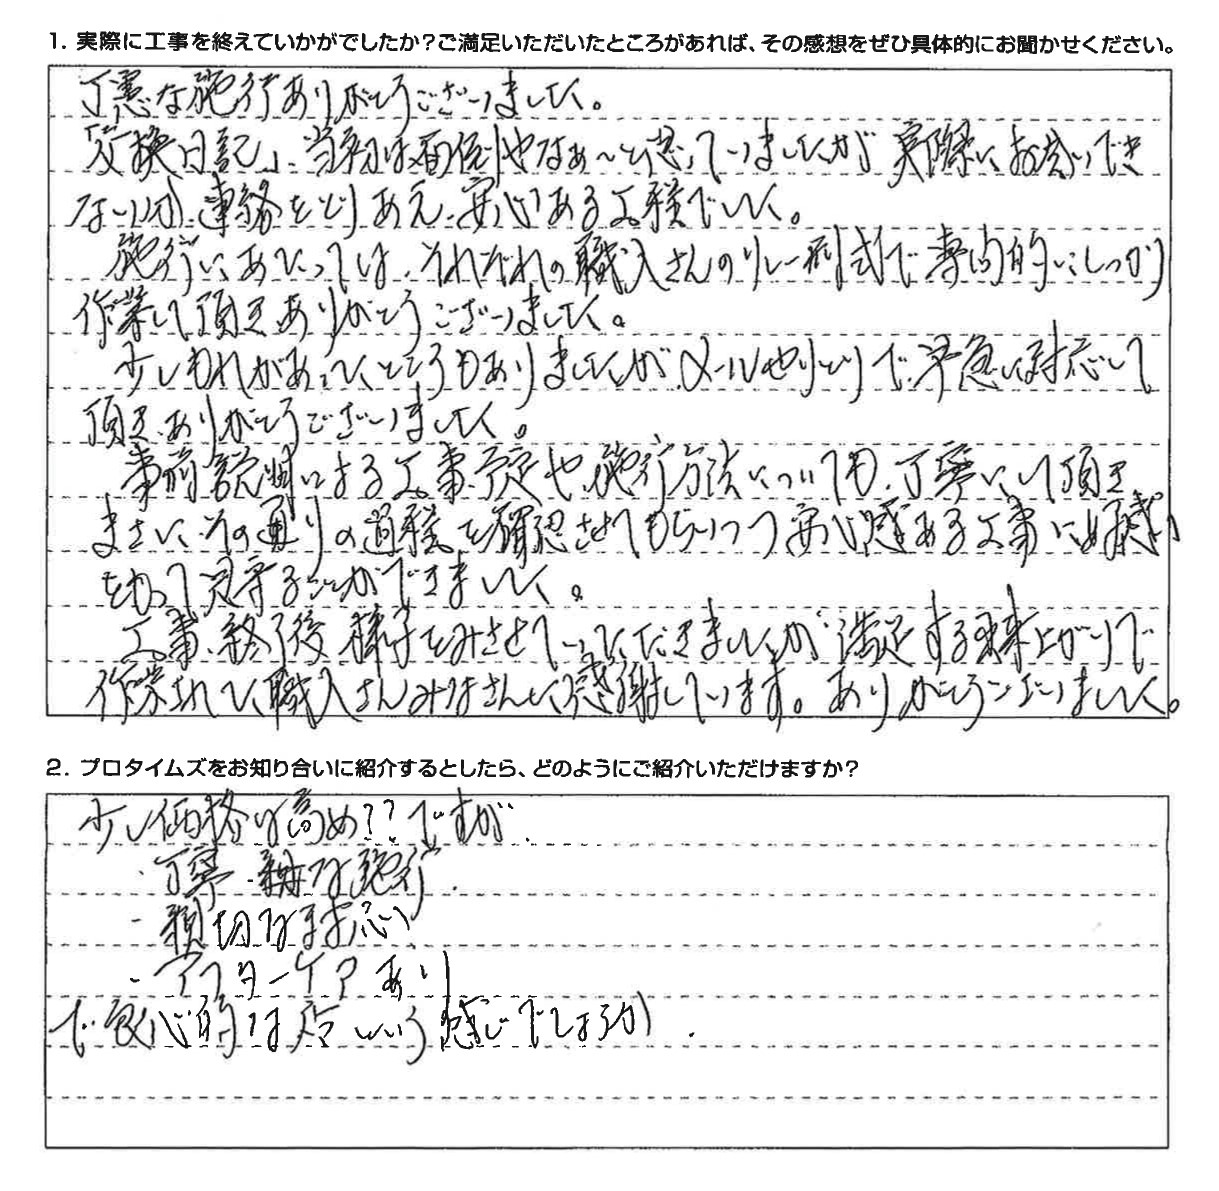 1. 実際に工事を終えていかがでしたか?ご満足いただいたところがあれば、その感想をぜひ具体的にお聞かせください。
丁寧な施行ありがとうございました。
「交換日記」、当初は面倒やなぁ〜と思っていましたが実際にお会いでき
ない分、連絡をとりあえ、安心ある工程でした。
施行にあたっては、それぞれの職人さんのリレー形式で専門的にしっかり
作業して頂きありがとうございました。
少しもれがあったところもありましたがメールやりとりで早急に対応して
頂き、ありがとうございました。
事前説明による工事予定や施行方法についても、丁寧にして頂き
まさにその通りの過程を確認させてもらいつつ安心感ある工事に好感
をもって見守ることができました。
工事終了後様子をみさせていただきましたが満足する出来上がりで
作業された職人さんみなさんに感謝しています。ありがとうございました。
2. プロタイムズをお知り合いに紹介するとしたら、どのようにご紹介いただけますか?
少し価格は高め??ですが
・丁寧な施行
・親切な対応
・アフターケアあり
で良心的な店という感じでしょうか.